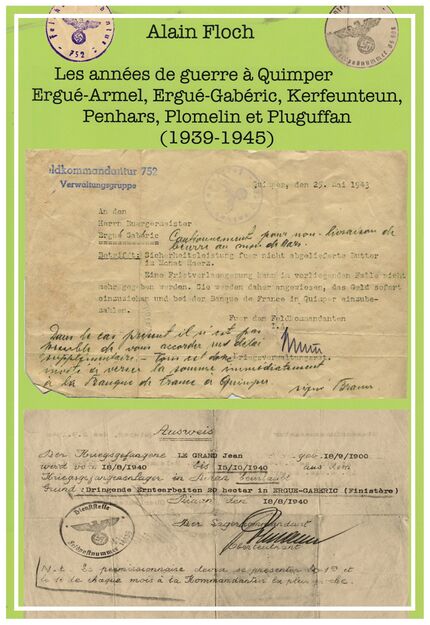 Alain Floch
Les années de guerre à Quimper
Ergué-Armel, Ergué-Gabéric, Kerfeunteun,
Penhars, Plomelin et Pluguffan
(1939-1945)
ldkommandantur 752
Verwaltungsgruppe
Quimper, den 25. Mai 1943
An den
Herrn Buergermeister
Ergué Gabéric
Cautionnement pour non-livraison de
beurre au mois de Mars.
Betrifft: Sicherheitsleistung fuer nicht abgelieferte Butter
im Monat Maerz.
Eine Fristverlaengerung kann im vorliegenden Falle nicht
gegeben werden. Sie werden daher angewiesen, das Geld sofort
einzuziehen und bei der Banque de France in Quimper einzube-
zahlen.
Fuer den Feldkommandanten
Dans le cas présent il n'est pas
possible de vous accorder un délai
supplémentaire. - Vous êtes donc
invité à verser la somme immédiatement
à la Banque de France à Quimper
Kriegsverwaltungsrat
signé
Ausweis
Der Kriegsgefangene LE GRAND Jean geb 18/9/1900
wird vom 18/8/1940 bis 15/10/1940 aus dem
Kriegsgefangenenlager in Dinan beurlaubt
Grund: Dringende Erntearbeiten 20 hectar in ERGUE-GABERIC (Finistère)
Dinan den 18/8/1940
Der Lagerkommandant
Oberleutnant
Dienststelle
Feldpostnummer
N.B. Le permissionnaire devra se présenter le 1er et
le 15 de chaque mois à la Kommandantur la plus proche.